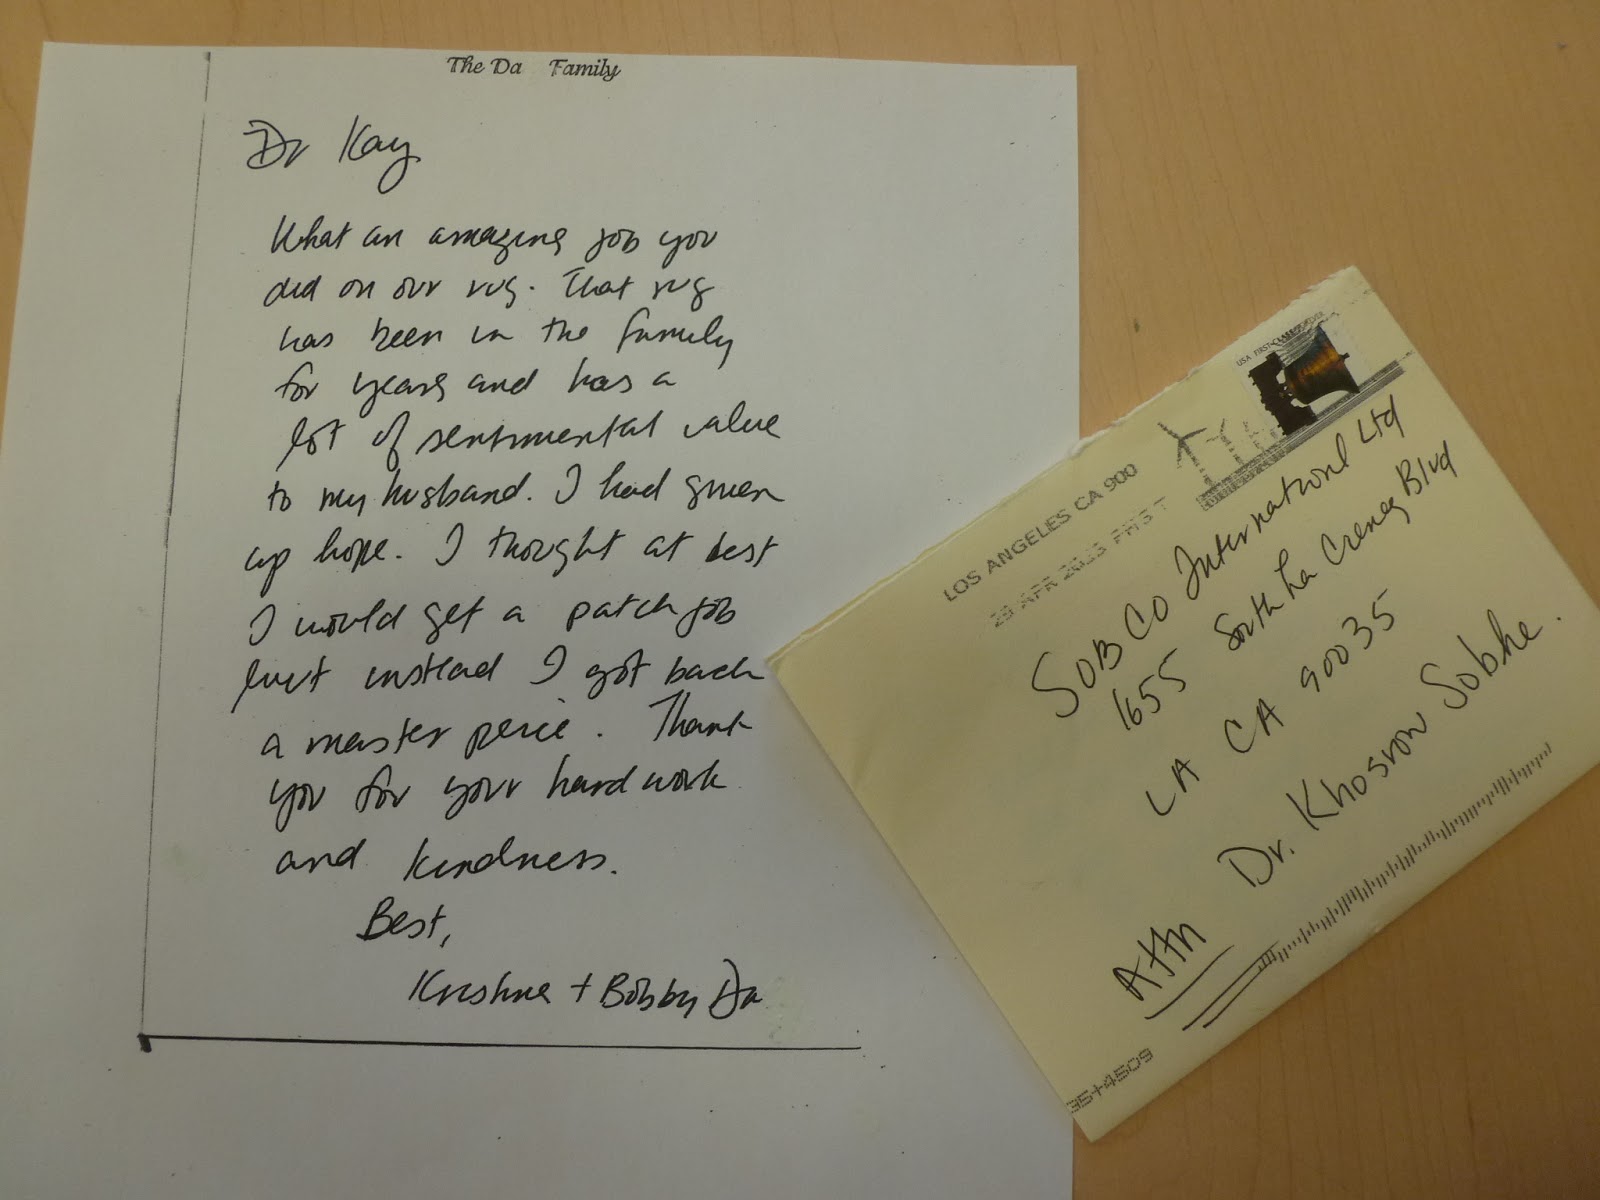 The Da Family
Dr Kay
What an amazing job you
did on our rug. That rug
has been in the family
for years and has a
lot of sentimental value
to my husband. I had given
up hope. I thought at best
I would get a patch job
but instead I got back
a master peice. Thank
you for your hard work
and kindness.
Best,
Kristine + Bobby Da
USA FIRST-CLASS
LOS ANGELES CA 900
29 APR 2013 PM 3 T
SOBCO International Ltd
1655 South La Cieneg Blvd
LA CA 90035
Attn Dr. Khosrow Sobhe.
35+4509